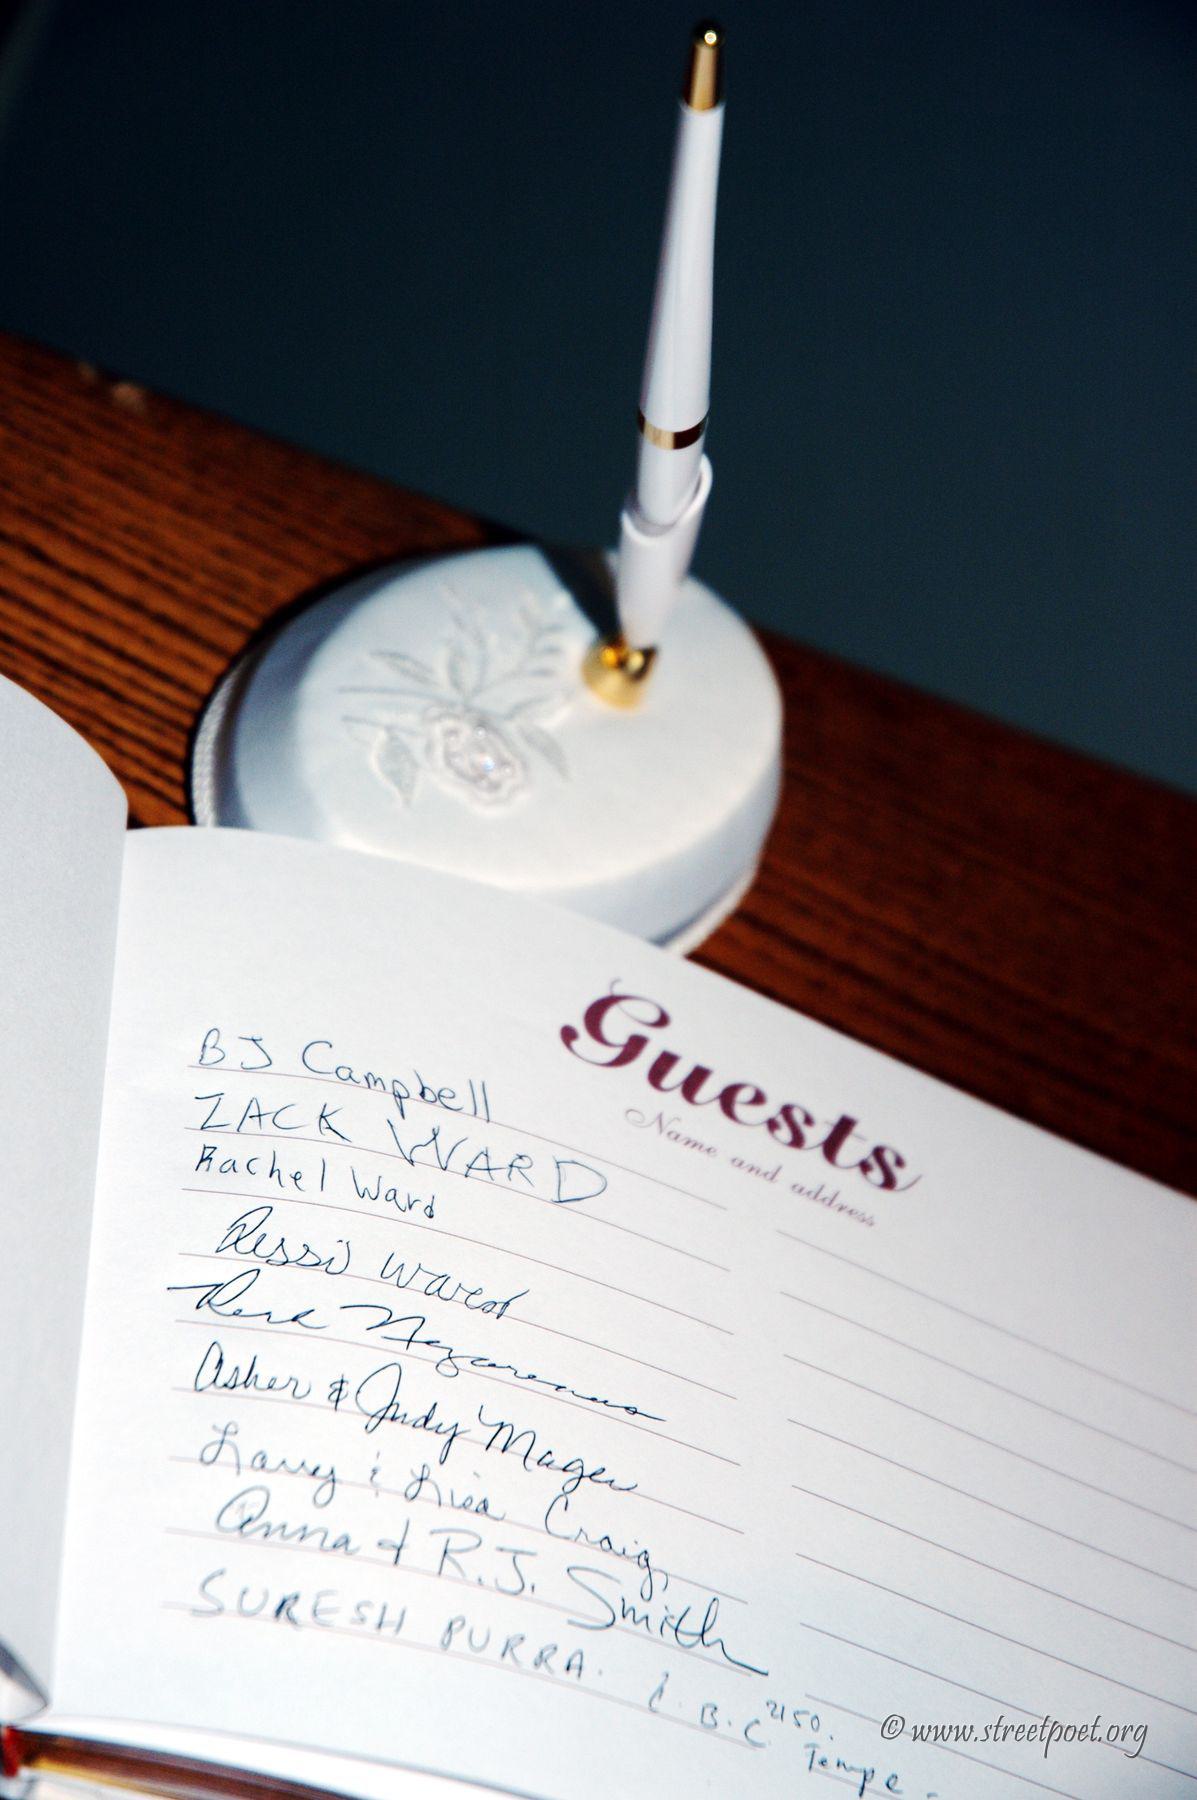 Guests
Name and address
BJ Campbell
ZACK WARD
Rachel Ward
Asher & Judy Magen
Larry & Lisa Craig,
Anna & R.J. Smith
SURESH PURRA. I.B.C 2150.
Tempe
© www.streetpoet.org